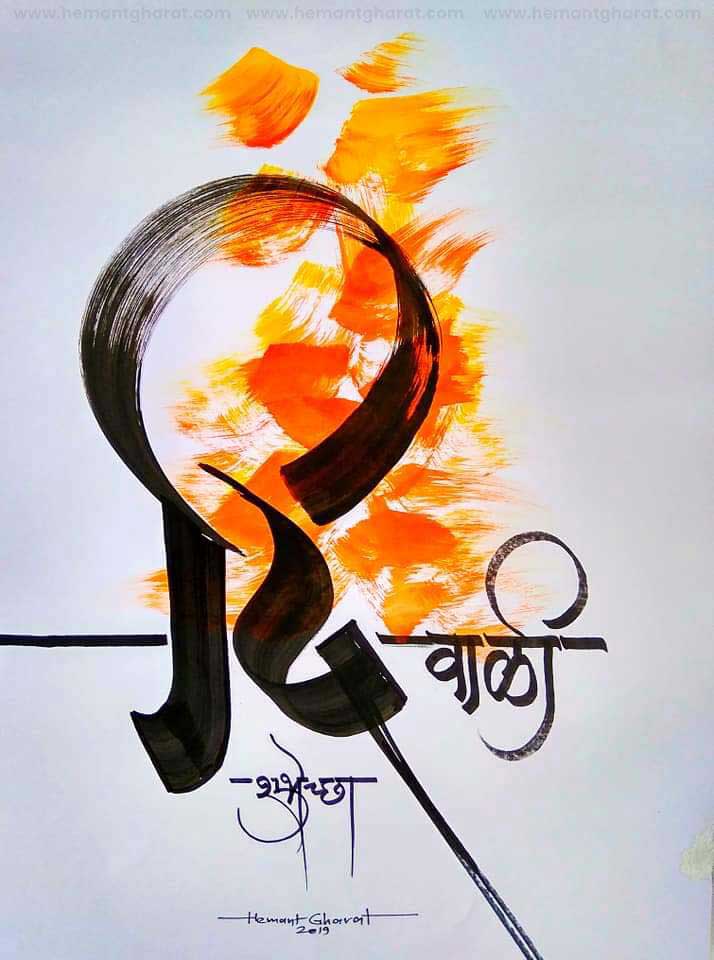 www.hemantgharat.com www.hemantgharat.com www.hemantgharat.com
दिवाळी
शुभेच्छा
Hemant Gharat
2019